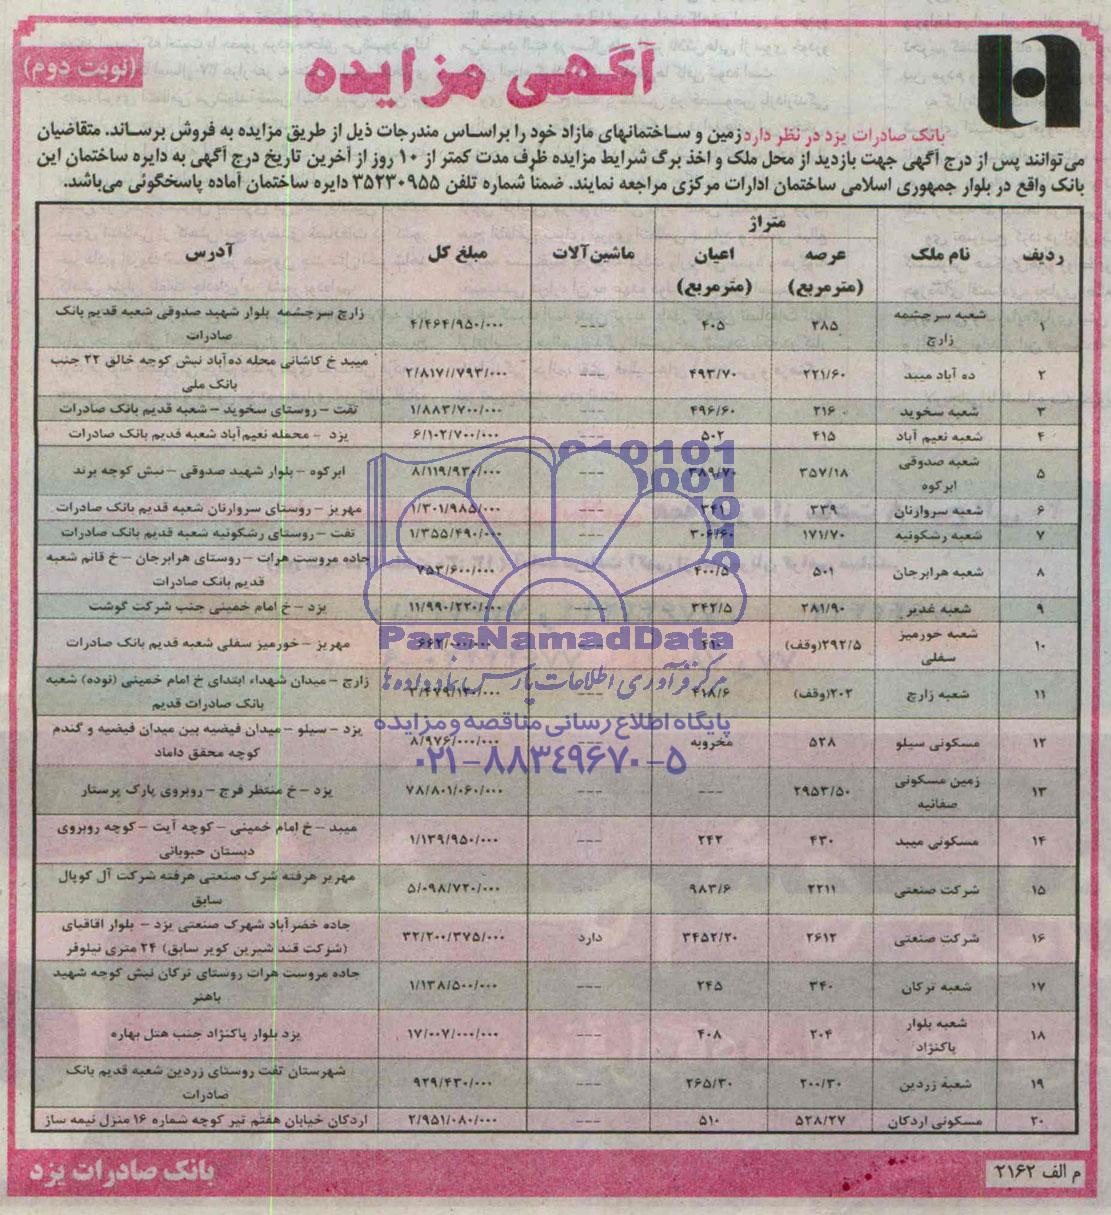 آگهی مزایده
(نوبت دوم)
بانک صادرات یزد در نظر دارد زمین و ساختمانهای مازاد خود را براساس مندرجات ذیل از طریق مزایده به فروش برساند. متقاضیان
می‌توانند پس از درج آگهی جهت بازدید از محل ملک و اخذ برگ شرایط مزایده ظرف مدت کمتر از ۱۰ روز از آخرین تاریخ درج آگهی به دایره ساختمان این
بانک واقع در بلوار جمهوری اسلامی ساختمان ادارات مرکزی مراجعه نمایند. ضمنا شماره تلفن ۳۵۲۳۰۹۵۵ دایره ساختمان آماده پاسخگوئی می‌باشد.
ردیف نام ملک متراژ عرصه (مترمربع) اعیان (مترمربع) ماشین‌آلات مبلغ کل آدرس
۱ شعبه سرچشمه زارچ ۲۸۵ ۴۰۵ --- ۴/۴۶۴/۹۵۰/۰۰۰ زارچ سرچشمه بلوار شهید صدوقی شعبه قدیم بانک صادرات
۲ ده آباد میبد ۲۲۱/۶۰ ۴۹۳/۷۰ --- ۲/۸۱۷//۷۹۳/۰۰۰ میبد خ کاشانی محله ده‌آباد نبش کوچه خالق ۲۲ جنب بانک ملی
۳ شعبه سخوید ۲۱۶ ۴۹۶/۶۰ --- ۱/۸۸۳/۷۰۰/۰۰۰ تفت – روستای سخوید – شعبه قدیم بانک صادرات
۴ شعبه نعیم آباد ۴۱۵ ۵۰۲ --- ۶/۱۰۲/۷۰۰/۰۰۰ یزد – محمله نعیم‌آباد شعبه قدیم بانک صادرات
۵ شعبه صدوقی ابرکوه ۳۵۷/۱۸ ۳۸۹/۷۰ --- ۸/۱۱۹/۹۳۰/۰۰۰ ابرکوه – بلوار شهید صدوقی – نبش کوچه برند
۶ شعبه سروارتان ۳۳۹ ۳۴۱ --- ۱/۳۰۱/۹۸۵/۰۰۰ مهریز – روستای سروارتان شعبه قدیم بانک صادرات
۷ شعبه رشکوئیه ۱۷۱/۷۰ ۳۰۶/۶۰ ۱/۳۵۵/۴۹۰/۰۰۰ تفت – روستای رشکوئیه شعبه قدیم بانک صادرات
۸ شعبه هرابرجان ۵۰۱ ۴۰۰/۵ ۷۵۳/۶۰۰/۰۰۰ جاده مروست هرات – روستای هرابرجان – خ قائم شعبه قدیم بانک صادرات
۹ شعبه غدیر ۲۸۱/۹۰ ۳۴۲/۵ --- ۱۱/۹۹۰/۲۲۰/۰۰۰ یزد – خ امام خمینی جنب شرکت گوشت
۱۰ شعبه خورمیز سفلی ۲۹۲/۵(وقف) ۶۶۲/۰۰۰/۰۰۰ مهریز – خورمیز سفلی شعبه قدیم بانک صادرات
۱۱ شعبه زارچ ۲۰۲(وقف) ۴۱۸/۶ زارچ – میدان شهداء ابتدای خ امام خمینی (نوده) شعبه بانک صادرات قدیم
۱۲ مسکونی سیلو ۵۲۸ مخروبه --- ۸/۹۷۶/۰۰۰/۰۰۰ یزد – سیلو – میدان فیضیه بین میدان فیضیه و گندم کوچه محقق داماد
۱۳ زمین مسکونی صفائیه ۲۹۵۳/۵۰ --- --- ۷۸/۸۰۱/۰۶۰/۰۰۰ یزد – خ منتظر فرج – روبروی پارک پرستار
۱۴ مسکونی میبد ۴۳۰ ۲۴۲ --- ۱/۱۳۹/۹۵۰/۰۰۰ میبد – خ امام خمینی – کوچه آیت – کوچه روبروی دبستان حبوباتی
۱۵ شرکت صنعتی ۲۲۱۱ ۹۸۳/۶ --- ۵/۰۹۸/۷۲۰/۰۰۰ مهریز هرفته شرک صنعتی هرفته شرکت آل کوپال سابق
۱۶ شرکت صنعتی ۲۶۱۲ ۳۴۵۲/۲۰ دارد ۳۲/۲۰۰/۳۷۵/۰۰۰ جاده خضرآباد شهرک صنعتی یزد – بلوار اقاقیای (شرکت قند شیرین کویر سابق) ۲۴ متری نیلوفر
۱۷ شعبه ترکان ۳۴۰ ۲۴۵ --- ۱/۱۳۸/۵۰۰/۰۰۰ جاده مروست هرات روستای ترکان نبش کوچه شهید باهنر
۱۸ شعبه بلوار پاکنژاد ۲۰۴ ۴۰۸ --- ۱۷/۰۰۷/۰۰۰/۰۰۰ یزد بلوار پاکنژاد جنب هتل بهاره
۱۹ شعبه زردین ۲۰۰/۳۰ ۲۶۵/۳۰ --- ۹۲۹/۴۳۰/۰۰۰ شهرستان تفت روستای زردین شعبه قدیم بانک صادرات
۲۰ مسکونی اردکان ۵۲۸/۲۷ ۵۱۰ --- ۲/۹۵۱/۰۸۰/۰۰۰ اردکان خیابان هفتم تیر کوچه شماره ۱۶ منزل نیمه ساز
ParsNamadData
مرکز فرآوری اطلاعات پارس نماد داده ها
پایگاه اطلاع رسانی مناقصه و مزایده
۰۲۱-۸۸۳۴۹۶۷۰-۵
م الف ۲۱۶۲
بانک صادرات یزد